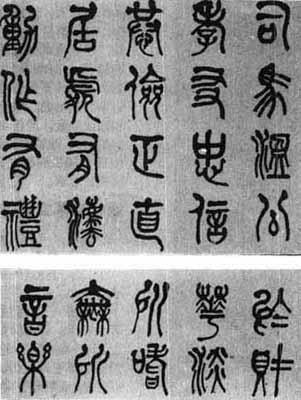 司馬溫公
孝友忠信
恭儉正直
居處有灋
動作有禮
於財
華淡
所嗜
無所
音樂